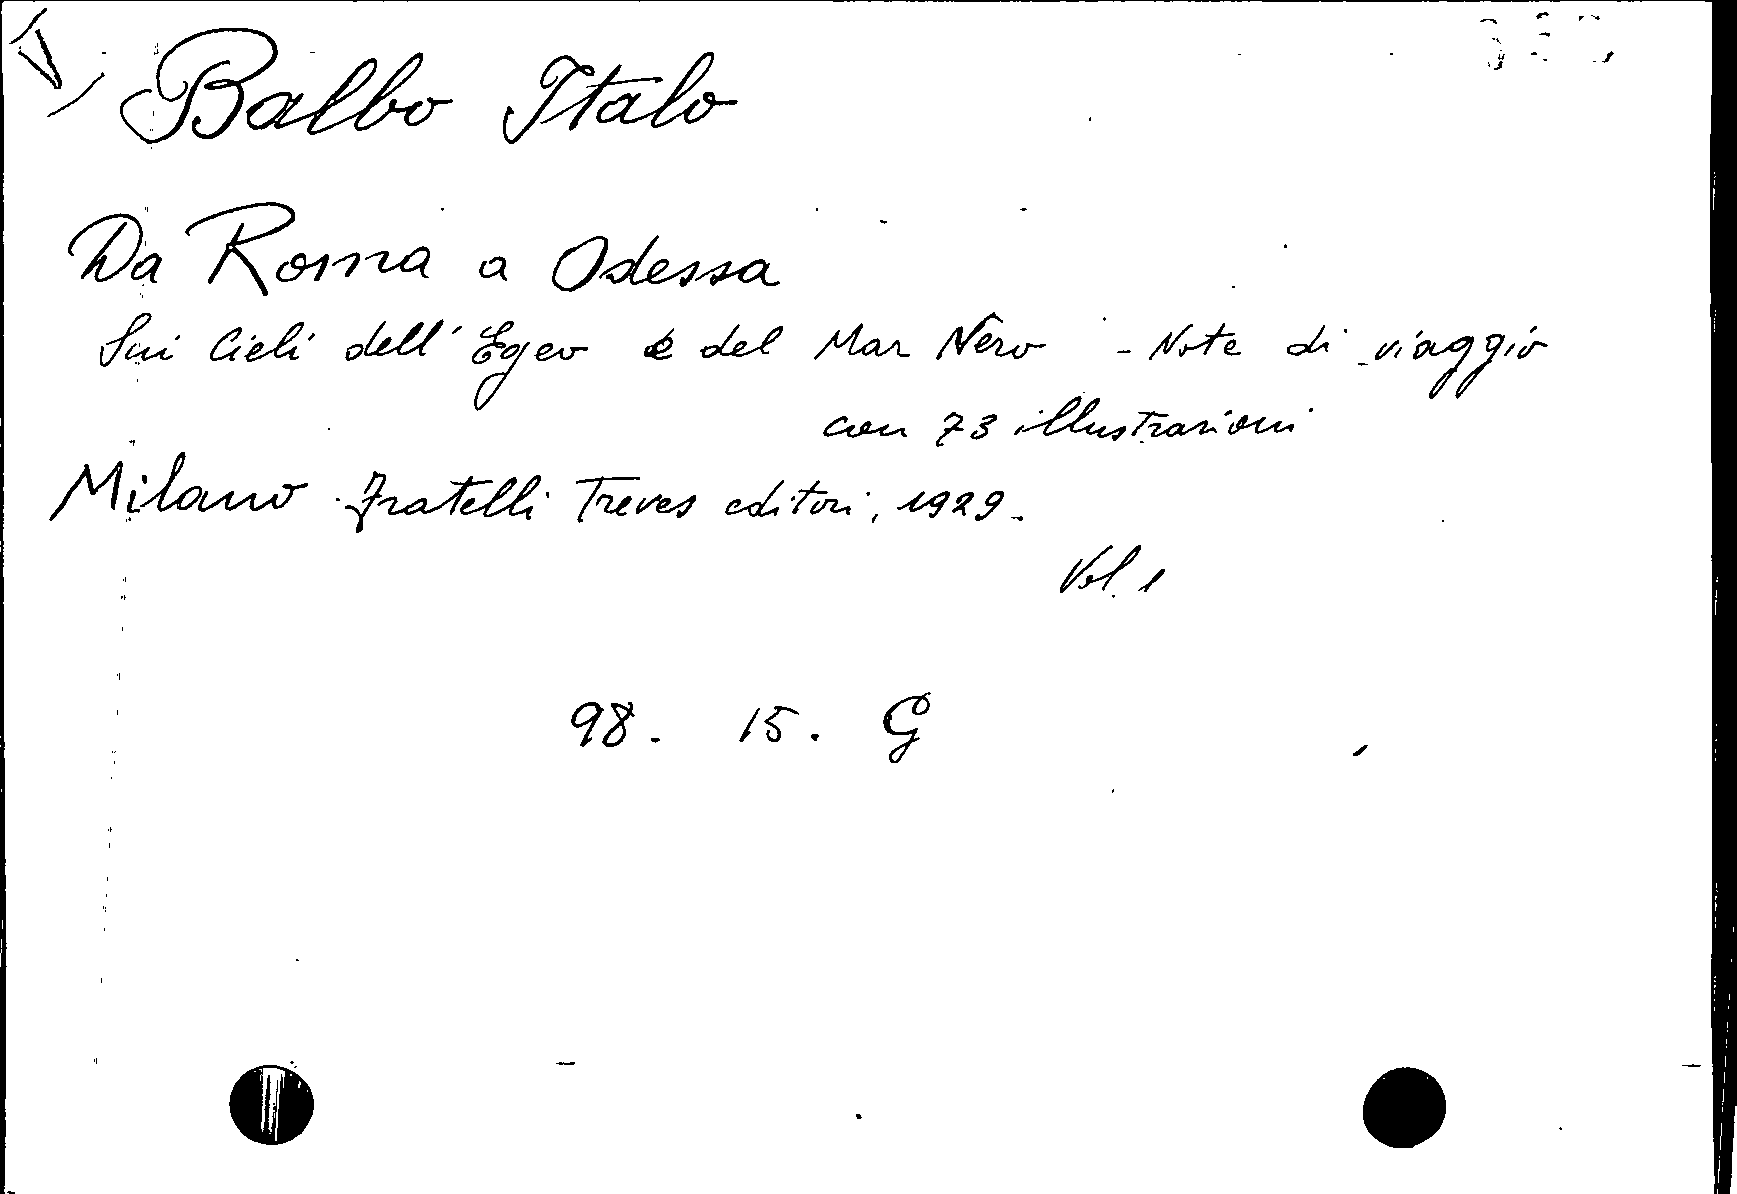 Balbo Italo
Da Roma a Odessa
Sui Cieli dell'Egeo e del Mar Nero - Note di viaggio
con 73 illustrazioni
Milano Fratelli Treves editori, 1929.
Vol. 1
98. 15. G